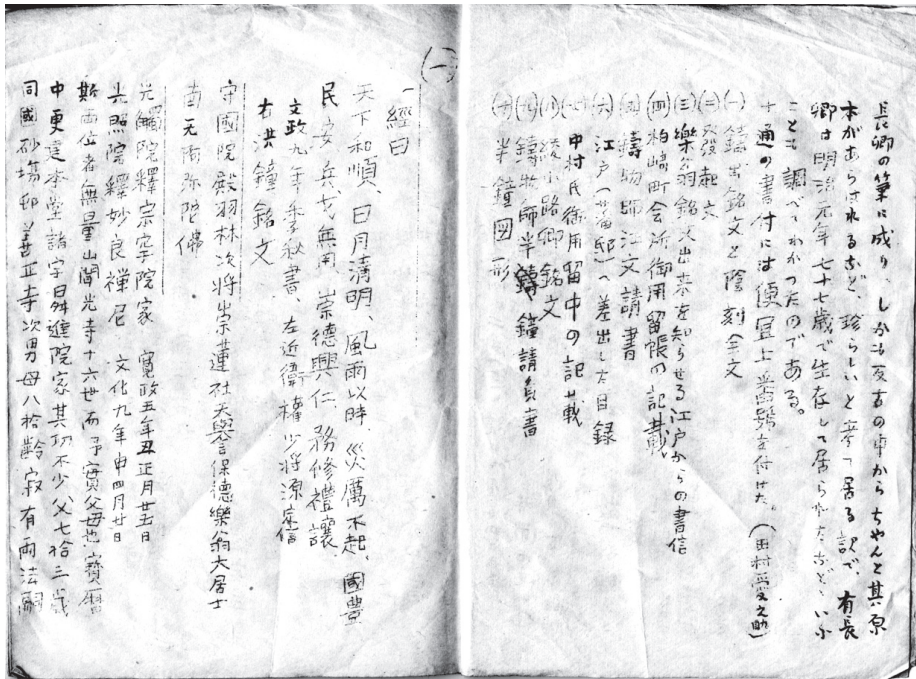 長卿の筆に成り、しかも反古の中からちやんと其原
本があらはれるなど、珍らしいと存て居る訳で、有長
卿は明治元年七十七歳で生存して居られたなどゝいふ
ことも調べてわかつたのである。
十通の書付には便宜上番號を付けた。(田村愛之助)
(一)鋳出銘文と陰刻全文
(二)発起文
(三)樂翁銘文出来を知らせる江戸からの書信
(四)柏崎町会所御用留帳の記載
(五)鋳物師江文請書
(六)江戸(藩邸)へ差出した目録
(七)中村氏御用留中の記載
(八)綾小路卿銘文
(九)鋳物師半鐘請負書
(十)半鐘図形
(一)
一經曰
天下和順、日月清明、風雨以時、災厲不起、國豊
民安、兵戈無用、崇德興仁、務修禮讓
文政九年季秋書、左近衛權少将源定信
右洪鐘銘文
守國院殿羽林次将崇蓮社天譽保德樂翁大居士
南无阿弥陀佛
光觸院釋宗寧院家 寛政五年丑正月廿五日
光照院釋妙良禅尼 文化九年申四月廿日
斯両位者無量山聞光寺十六世而予實父母也寶暦
中更建本堂諸宇昇進院家其功不少父七拾三歳
同國砂塲邨善正寺次男母八拾齢寂有両法嗣